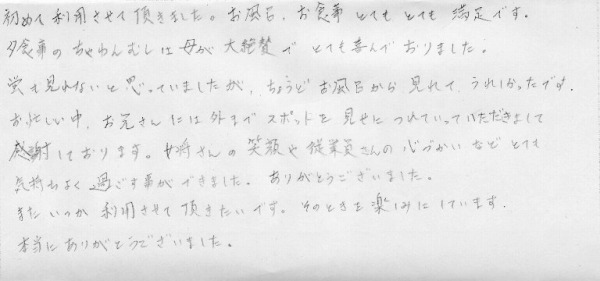 初めて利用させて頂きました。お風呂、お食事とてもとても満足です。
夕食事のちゃわんむしは母が大絶賛でとても喜んでおりました。
蛍て見れないと思っていましたが、ちょうどお風呂から見れて、うれしかったです。
お忙しい中、お兄さんには外までスポットを見せにつれていっていただきまして
感謝しております。女将さんの笑顔や従業員さんの心づかいなどとても
気持ちよく過ごす事ができました。ありがとうございました。
またいつか利用させて頂きたいです。そのときを楽しみにしています。
本当にありがとうございました。